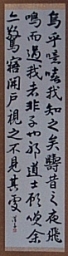 嗚乎噫嘻我知之矣疇昔之夜飛
鳴而過我者非子也邪道士顧笑余
亦驚寤開戶視之不見其處